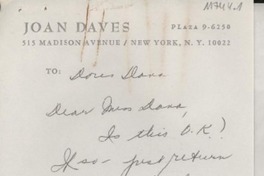 M744-1
JOAN DAVES PLAZA 9-6250
515 MADISON AVENUE / NEW YORK, N. Y. 10022
TO: Doris Dana
Dear Miss Dana,
Is this O.K?
If so - just return